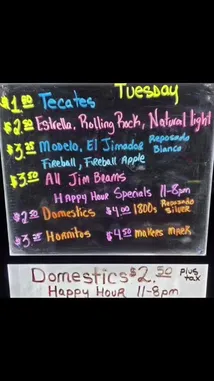 Tuesday
$1.00 Tecates
$2.50 Estrella, Rolling Rock, Natural light
$3.25 Modelo, El Jimador Reposado Blanco
Fireball, Fireball Apple
$3.50 All Jim Beams
Happy Hour Specials 11-8pm
$2.50 Domestics $4.00 1800s Reposado Silver
$3.25 Hornitos $4.50 makers mark
Domestics $2.50 plus tax
Happy Hour 11-8pm